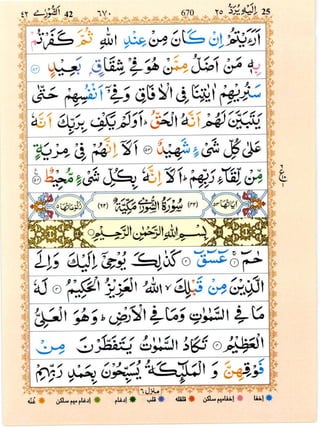 ٤٢ الشُّوْرٰى 42 ٦٧٠ 670 ٢٥ اِلَيْهِ يُرَدُّ 25
اَرَءَيْتُمْ اِنْ كَانَ مِنْ عِنْدِ اللّٰهِ ثُمَّ كَفَرْتُمْ
بِهٖ مَنْ اَضَلُّ مِمَّنْ هُوَ فِيْ شِقَاقٍۭ بَعِيْدٍ ٥٢
سَنُرِيْهِمْ اٰيٰتِنَا فِي الْاٰفَاقِ وَفِيْٓ اَنْفُسِهِمْ حَتّٰى
يَتَبَيَّنَ لَهُمْ اَنَّهُ الْحَقُّ ؕ اَوَلَمْ يَكْفِ بِرَبِّكَ اَنَّهٗ
عَلٰى كُلِّ شَيْءٍ شَهِيْدٌ ٥٣ اَلَآ اِنَّهُمْ فِيْ مِرْيَةٍ
مِّنْ لِّقَآءِ رَبِّهِمْ ؕ اَلَآ اِنَّهٗ بِكُلِّ شَيْءٍ مُّحِيْطٌ ٥٤
اٰيَاتُهَا ٥٣ (٤٢) سُوْرَةُ الشُّوْرٰى مَكِّيَّةٌ (٦٢) رُكُوْعَاتُهَا ٥
بِسْمِ اللّٰهِ الرَّحْمٰنِ الرَّحِيْمِ
حٰمٓ ١ عٓسٓقٓ ٢ كَذٰلِكَ يُوْحِيْٓ اِلَيْكَ وَاِلَى
الَّذِيْنَ مِنْ قَبْلِكَ ۙ اللّٰهُ الْعَزِيْزُ الْحَكِيْمُ ٣ لَهٗ
مَا فِي السَّمٰوٰتِ وَمَا فِي الْاَرْضِ ؕ وَهُوَ الْعَلِيُّ
الْعَظِيْمُ ٤ تَكَادُ السَّمٰوٰتُ يَتَفَطَّرْنَ مِنْ
فَوْقِهِنَّ وَالْمَلٰٓئِكَةُ يُسَبِّحُوْنَ بِحَمْدِ رَبِّهِمْ
منزل ٦
اخفا اخفا میم ساکن قلقله قلب ادغام ادغام میم ساکن غنّه